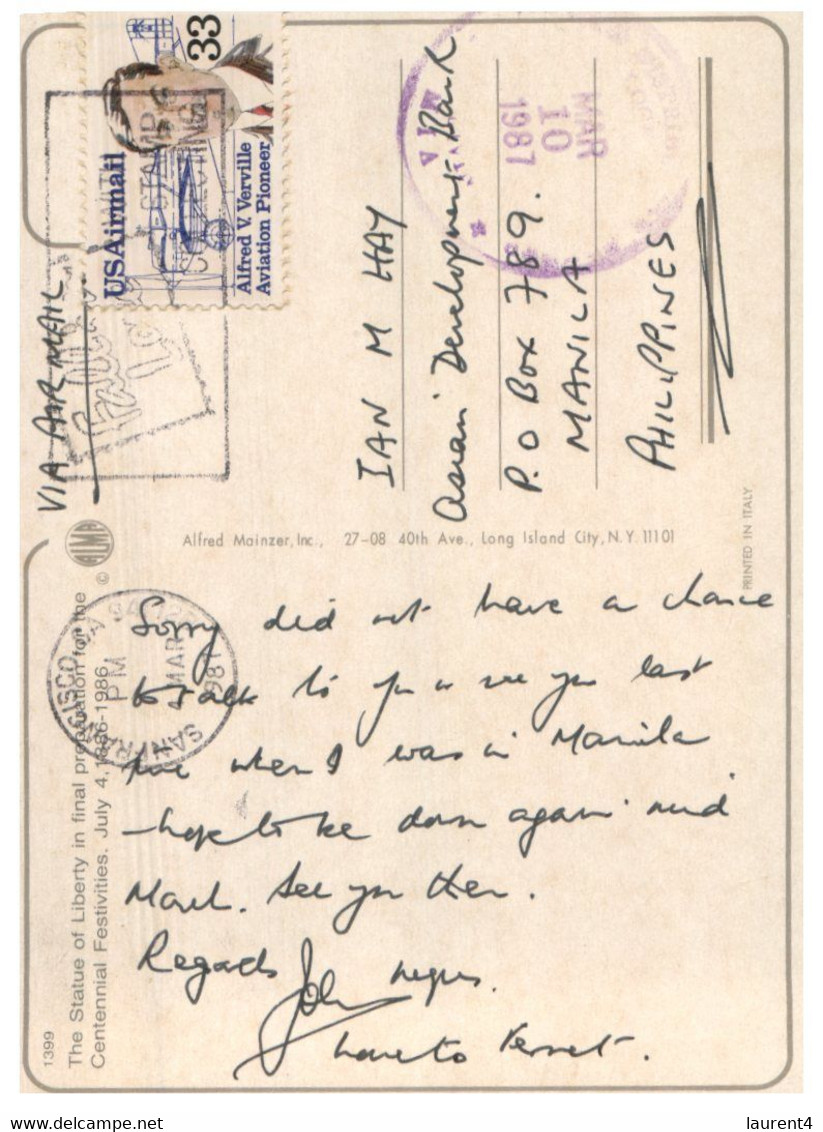 1399
The Statue of Liberty in final preparation for the
Centennial Festivities. July 4, 1886-1986
©
ALMA
VIA AIR MAIL
USAirmail
33
Alfred V. Verville
Aviation Pioneer
STAMP
SAN FRANCISCO CA
PM
MAR
1987
MAR
10
1987
Alfred Mainzer, Inc., 27-08 40th Ave., Long Island City, N.Y. 11101
PRINTED IN ITALY
IAN M HAY
Asian Development Bank
P.O Box 789.
MANILA
PHILIPPINES
Sorry did not have a chance
to talk to you or see you last
time when I was in Manila
- hope to be down again mid
March. See you then.
Regards John
Love to
laurent4